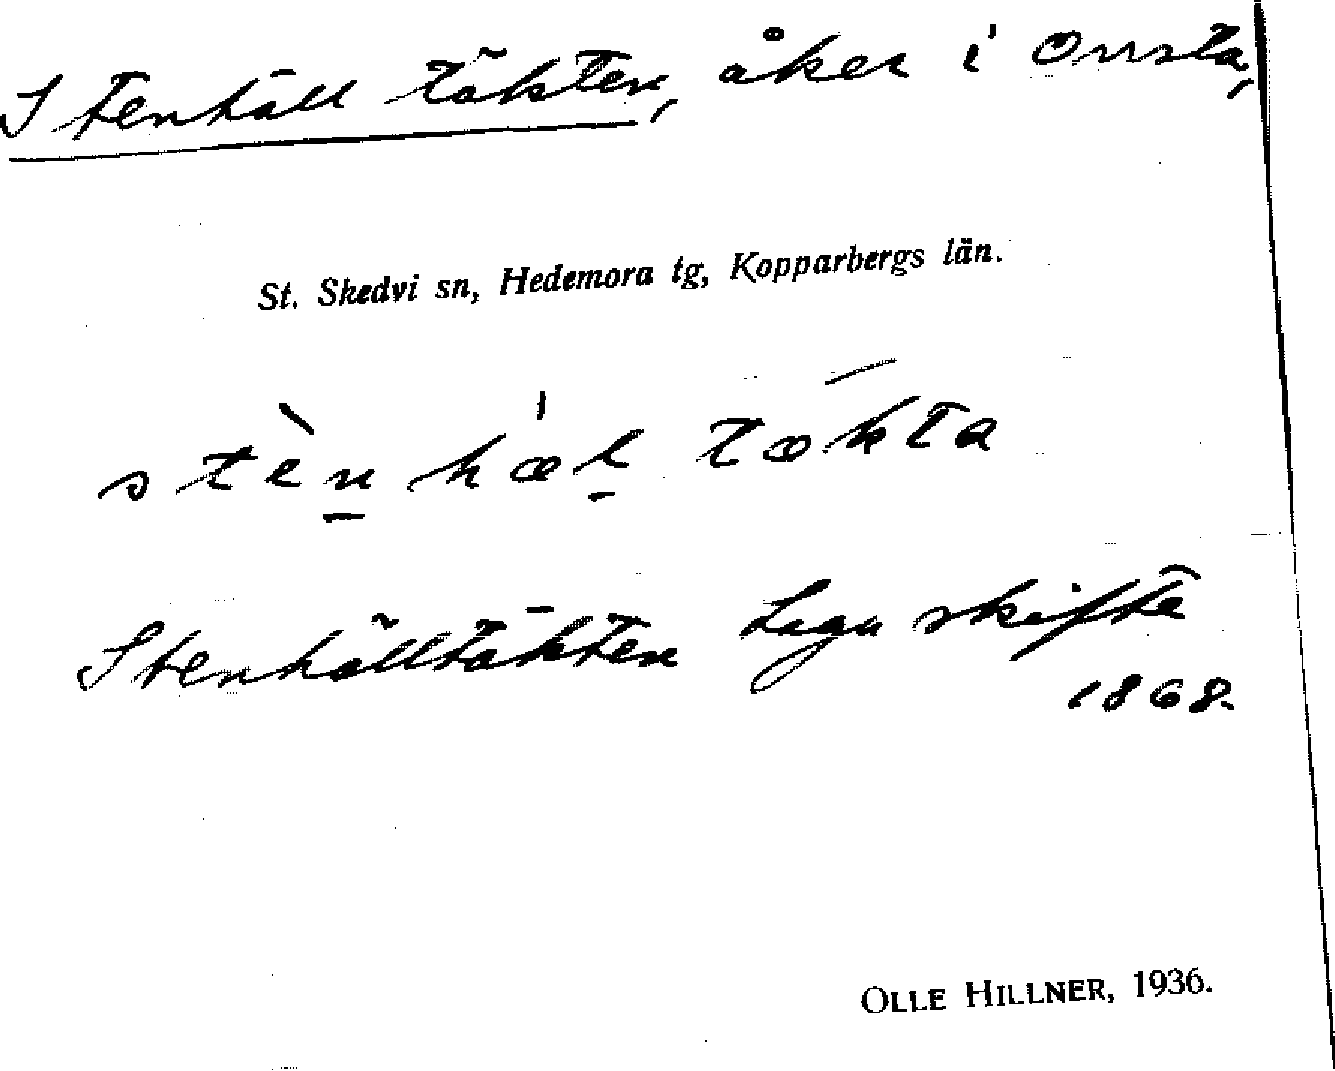 Stenhälltäkten, åker i Onsta,
St. Skedvi sn, Hedemora tg, Kopparbergs län.
stèn hæl tækta
Stenhälltäkten Laga skifte
1868.
OLLE HILLNER, 1936.